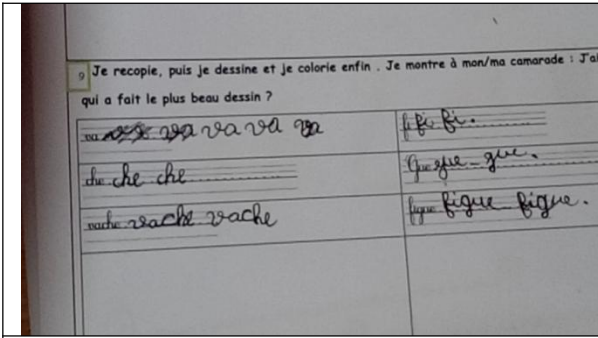 9 Je recopie, puis je dessine et je colorie enfin . Je montre à mon/ma camarade : J'ai
qui a fait le plus beau dessin ?
va va va va va
fi fi fi.
che che che
Gue gue gue.
vache vache vache
figue figue figue.